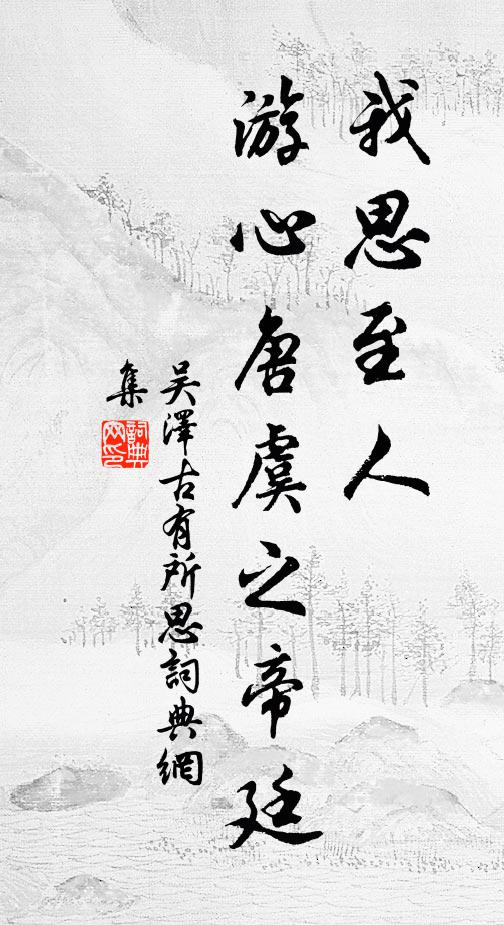 我思至人
游心唐虞之帝廷
吴澤古有所思詞典網
集
詞典
网印